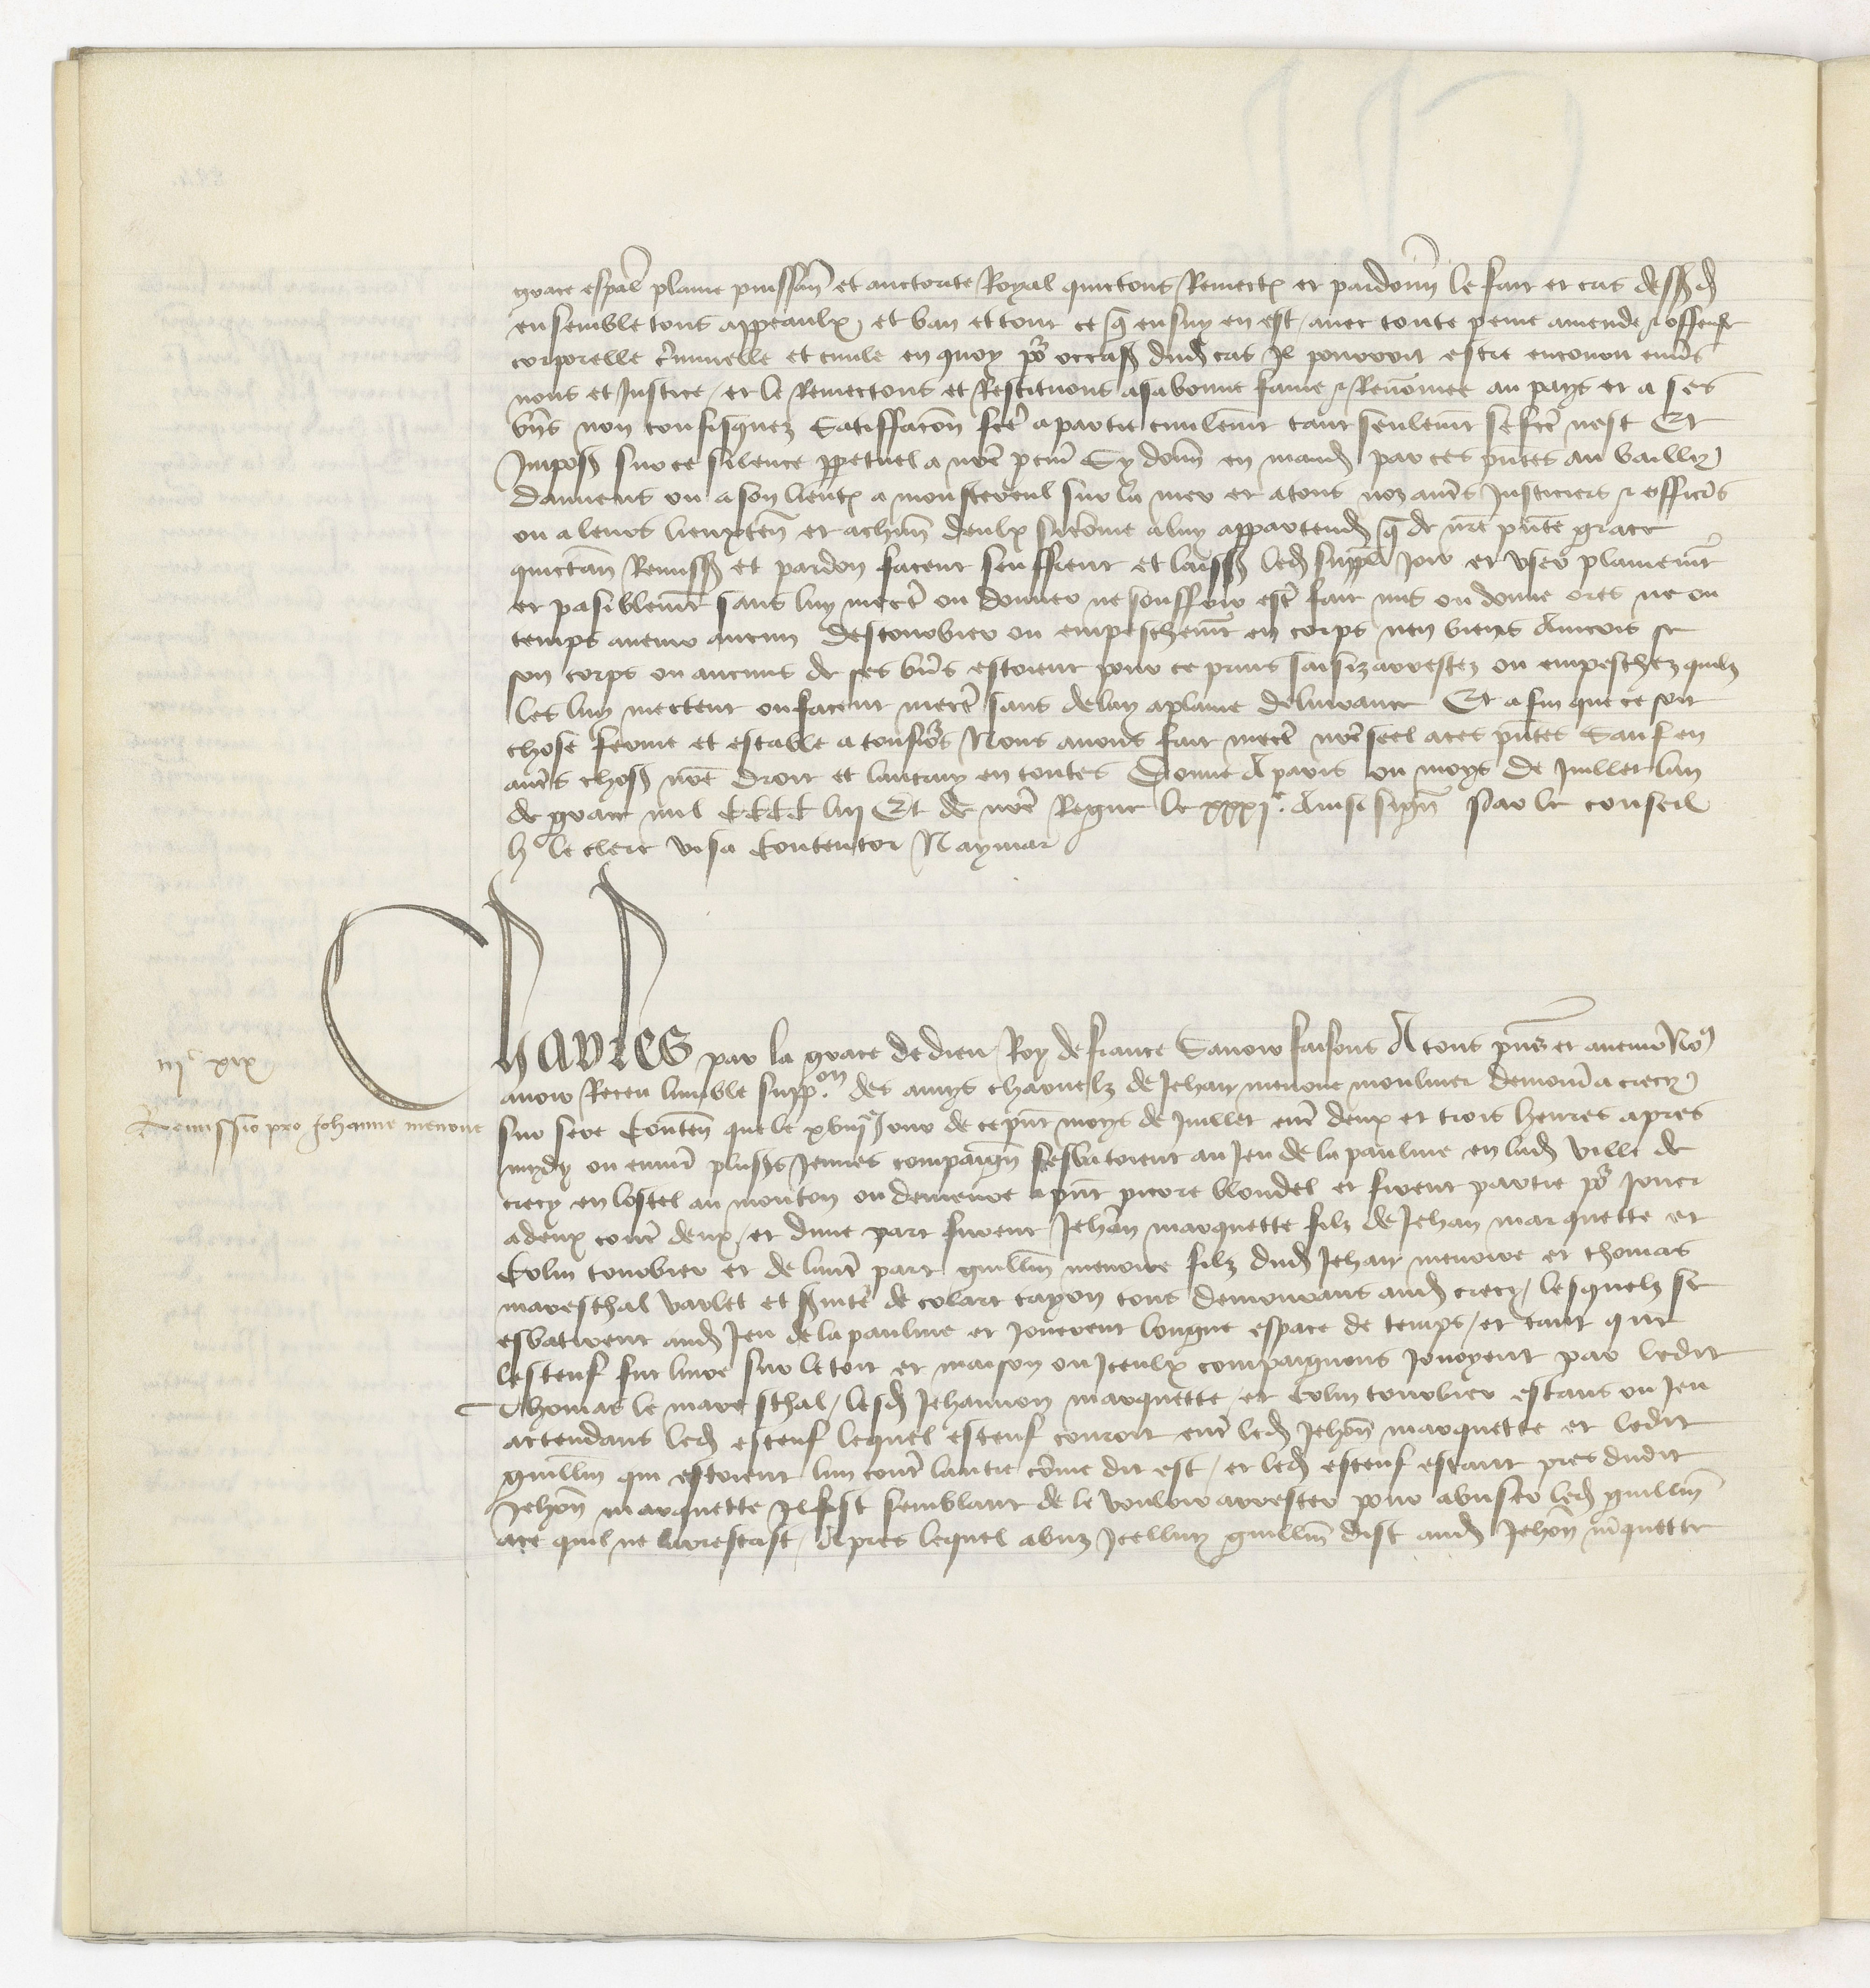 grace espal plaine puissan et auctorite Royal quictons Remect et pardonn le fait et cas dess d
ensemble tous appeaulx et ban et tout ce q ensuy en est, avec toute peine amende & offense
corporelle criminelle et civile en quoy po occas dud cas Il pourroit estre encouru envs
nous et Justice, et le Remectons et Restituons a sa bonne fame & Renommee au pays et a ses
bns non confisquez Satiffacon fcte a partie civilemt tant seulemt se fcte nest Et
Impos sur ce silence ppetuel a nre pcur Sy donn en mand par ces pntes au bailly
damiens ou a son lieut a monstereul sur la mer et a tous noz autrs Justiciers & officrs
ou a leurs lieuxten et a chun deulx sicome a luy appartend q de nre pnte grace
quictan Remiss et pardon facent seuffrent et laiss led suppl Joir et user plainemt
et pasiblemt sans luy mectre ou donner ne souffrir estre fait mis ou donne ores ne ou
temps avenir aucun destourbier ou empeschemt en corps nen biens Aincois se
son corps ou aucuns de ses bns estoient pour ce prins saisiz arrestez ou empeschez quilz
les luy mectent ou facent mectre sans delay a plaine delivrance Et afin que ce soit
chose ferme et estable a tousjours Nous avons fait mectre nre seel a ces pntes Sauf en
autrs chos nre droit et lautruy en toutes Donne A paris ou moys de Juillet lan
de grace mil CCCC liij Et de nre Regne le xxxje. Ainsi sign Par le conseil
h le clerc visa Contentor N aymar

Charles par la grace de dieu Roy de france Savoir faisons A tous pns et avenir Nous
avoir Receu lumble supp.on des amys charnelz de Jehan menoire moulnier demour a crecy
sur sere Conten que le xviije Jour de ce pnt moys de Juillet entre deux et trois heures apres
mydy ou environ plusrs Jeunes compaign sesbatoient au Jeu de la paulme en lad ville de
crecy en lostel au mouton ou demeure a pnt pierre blondel et firent partie po Jouer
a deux contre deux, et dune part furent Jehan marquette filz de Jehan marquette et
Colin tourbier et de lautre part guillm menoire filz dud Jehan menoire et thomas
mareschal varlet et svite de colart caron tous demourans aud crecy, lesquelz se
esbatirent aud Jeu de la paulme et Jouerent longue espace de temps, et tant que
lesteuf fut livre sur le toit et maison ou Iceulx compaignons Jouoyent par ledit
Thomas le mareschal, lesd Jehannon marquette, et Colin tourbier estans ou Jeu
actendans led esteuf lequel esteuf couroit entre led Jehon marquette et ledit
guillm qui estoient lun contre lautre come dit est, et led esteuf estant pres dudit
Jehon marquette Il fist semblant de le vouloir arrester pour abuser led guillm
ace quil ne larrestast, Apres lequel abuz Icelluy guillm dist aud Jehon mquette
iiic xix
Remissio pro Johanne menoire